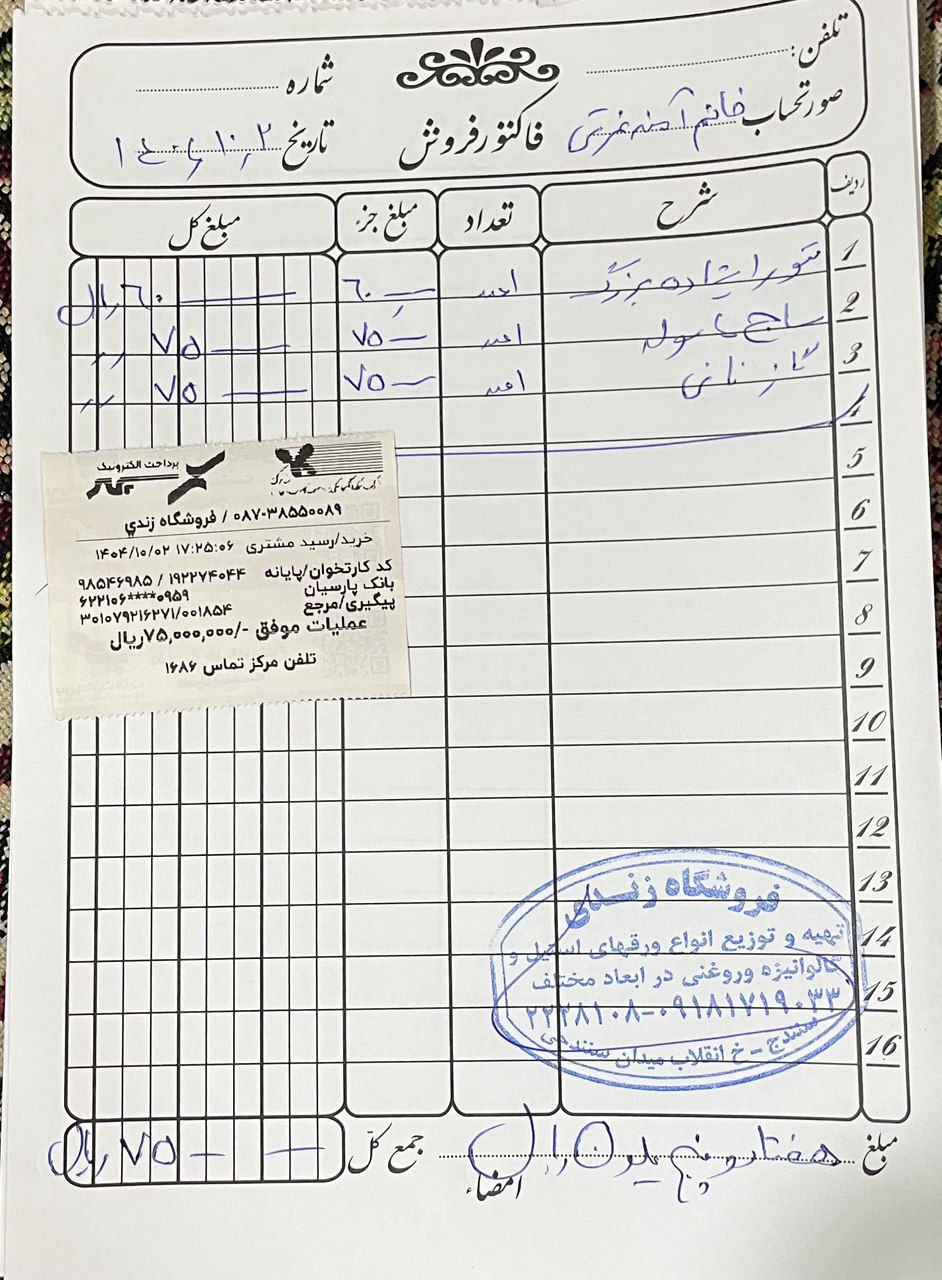 تلفن:
شماره
صورتحساب خانم آمنه
فاکتور فروش
تاریخ ۱۴۰۴/۱۰/۲
ردیف شرح تعداد مبلغ جزء مبلغ کل
1 تنور ایستاده بزرگ ۱عدد ۶۰ ۶۰ ریال
2 ساج با سوله ۱عدد ۷۵ ۷۵ 〃
3 گاز نانی ۱عدد ۷۵ ۷۵ 〃
4
5
6
7
8
9
10
11
12
13
14
15
16
پرداخت الکترونیک
۰۸۷-۳۸۵۵۰۰۸۹ / فروشگاه زندي
خرید/رسید مشتری ۱۷:۲۵:۰۶ ۱۴۰۴/۱۰/۰۲
کد کارتخوان/پایانه ۱۹۲۲۷۴۰۴۴ / ۹۸۵۴۶۹۸۵
بانک پارسیان ۶۲۲۱۰۶****۰۹۵۹
پیگیری/مرجع ۳۰۱۰۷۹۲۱۶۲۷۱/۰۰۱۸۵۴
عملیات موفق -/۷۵,۰۰۰,۰۰۰ریال
تلفن مرکز تماس ۱۶۸۶
فروشگاه زندی
تهیه و توزیع انواع ورقهای استیل و
گالوانیزه وروغنی در ابعاد مختلف
۲۲۲۸۱۰۸-۰۹۱۸۱۷۱۹۰۳۳
سنندج - خ انقلاب میدان سنندجی
مبلغ هفتاد و پنج میلیون ریال جمع کلّ ۷۵ ریال
امضاء